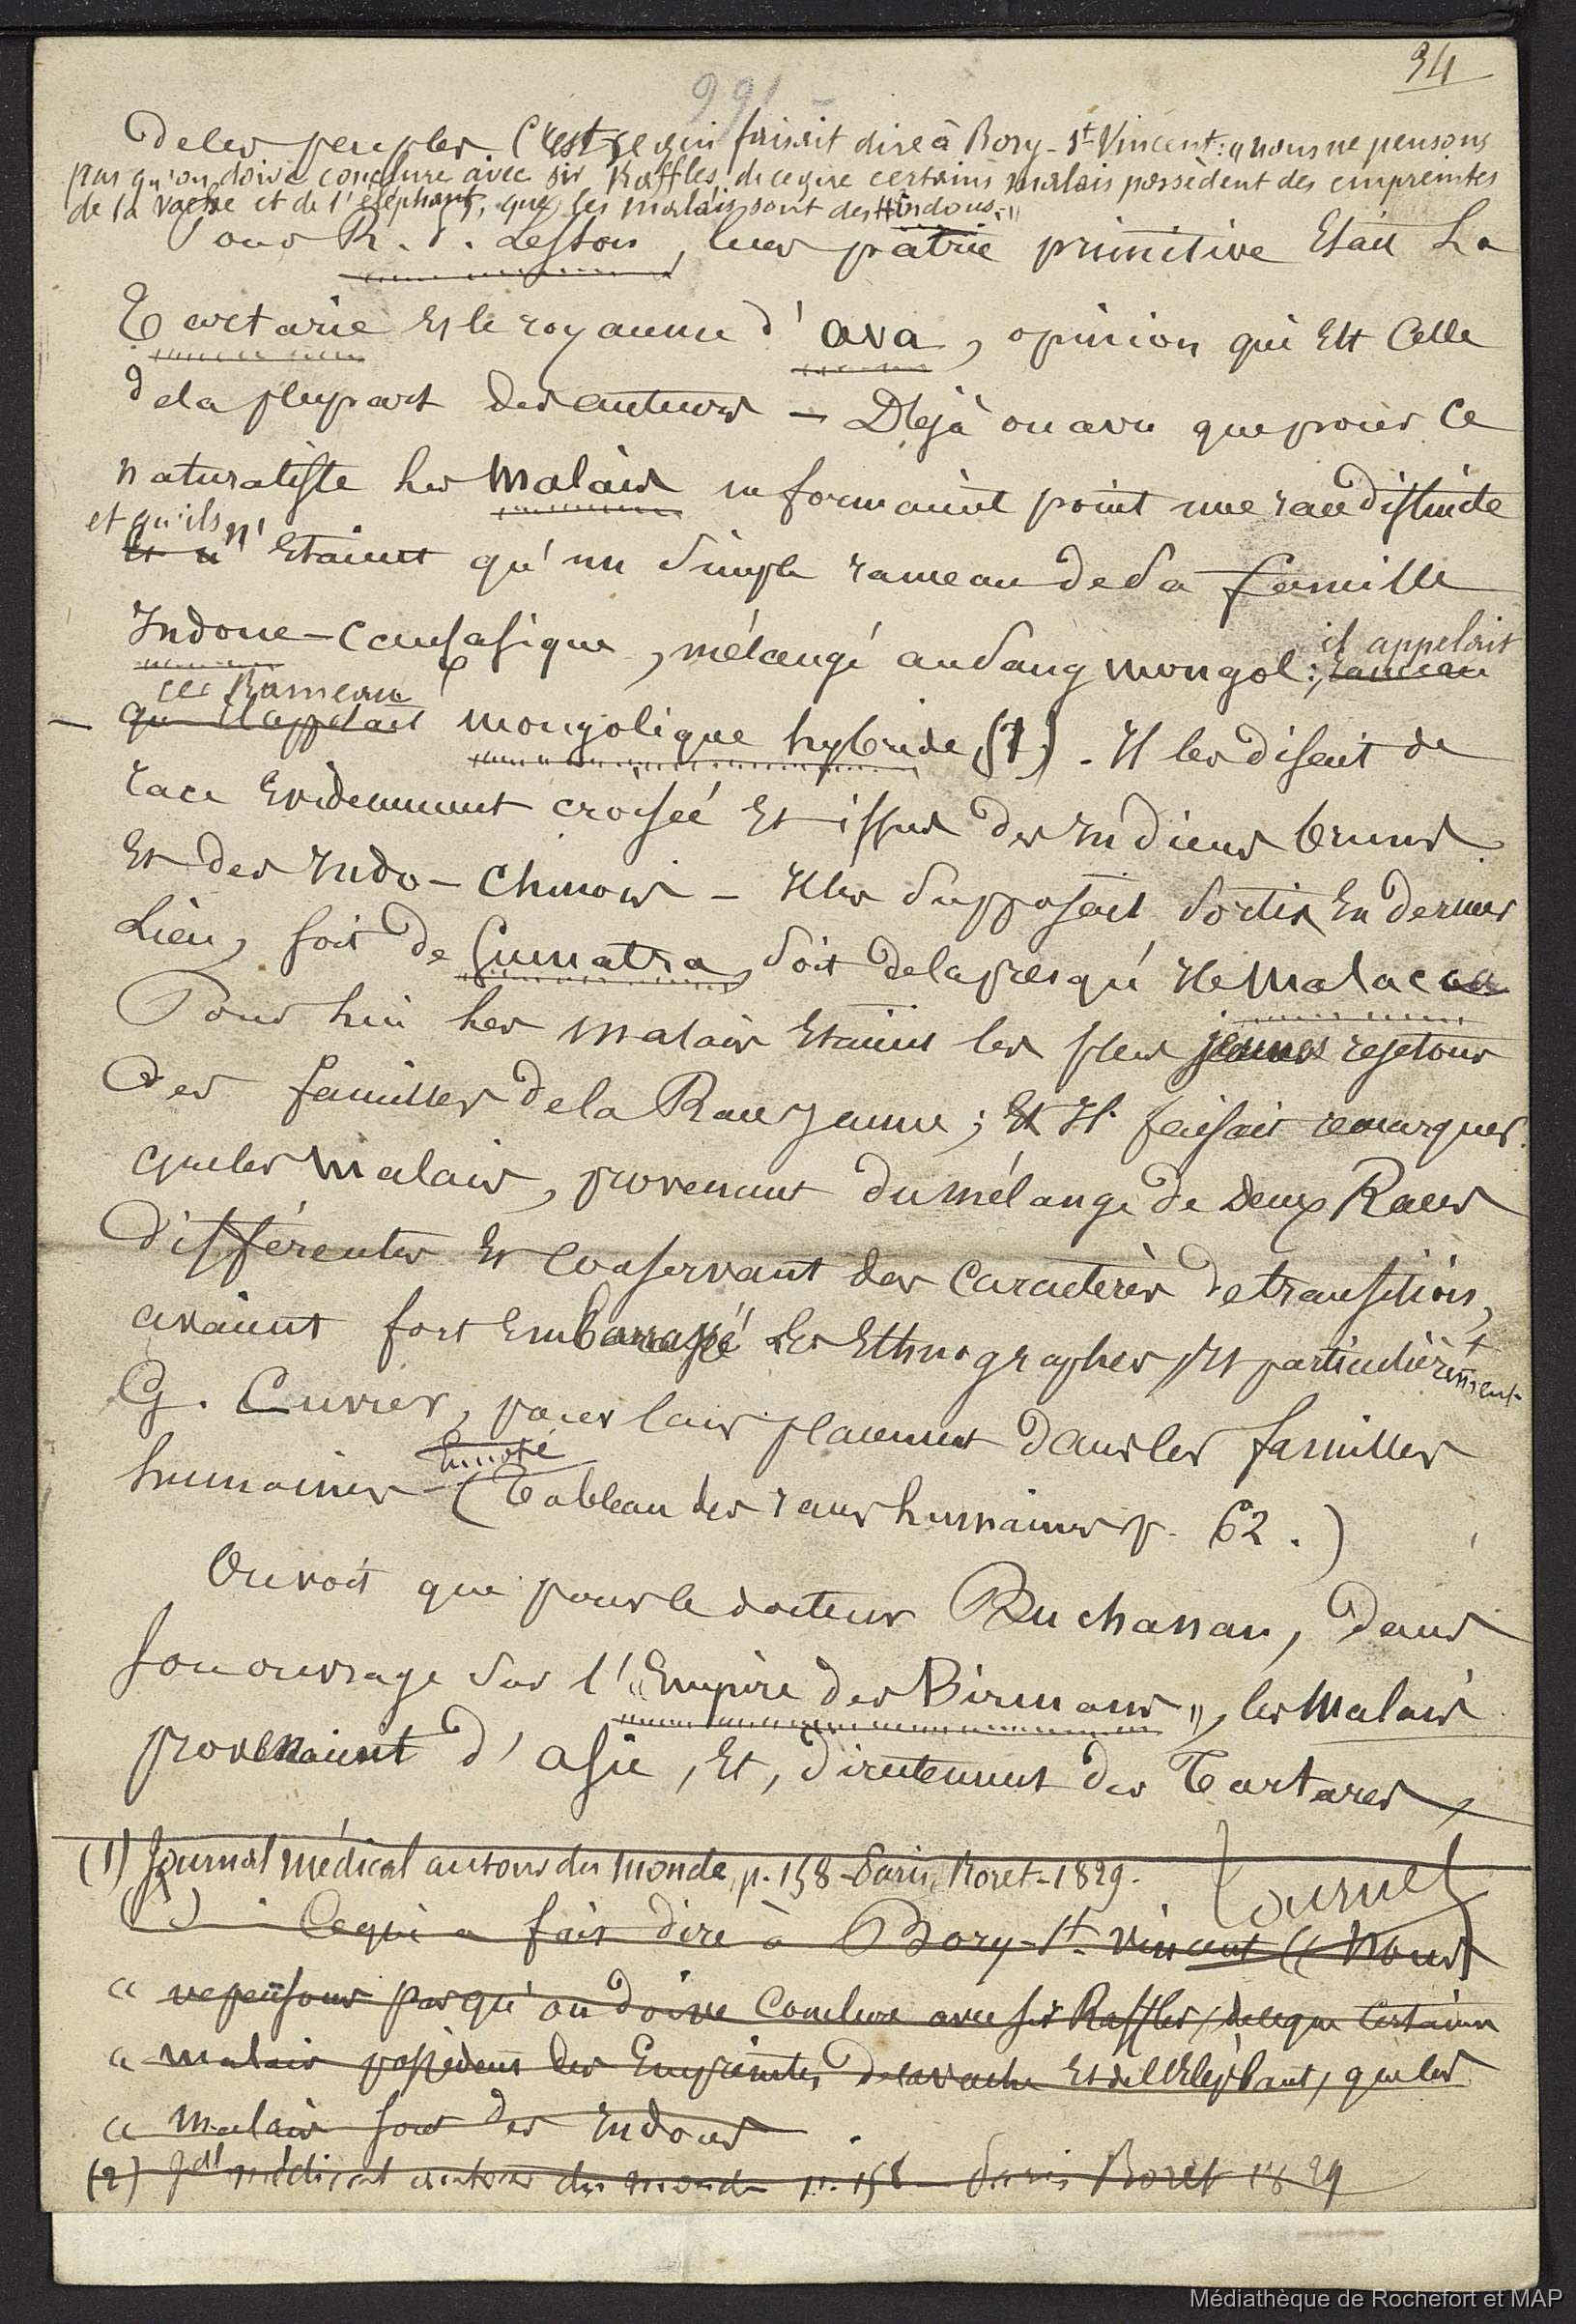 34
991
de les peuples C'est ce qui faisait dire à Bory-St Vincent: « nous ne pensons
pas qu'on doive conclure avec sir Raffles, de ce que certains malais possèdent des empreintes
de la vache et de l'éléphant, que les malais sont des Hindous. »
Pour R. P. Lesson, leur patrie primitive était La
Tartarie et le royaume d'ava, opinion qui est Celle
de la plupart des auteurs — Déjà on a vu que pour Ce
naturaliste les Malais ne formaient point une race distincte
et qu'ils n'
et n' étaient qu'un simple rameau de la famille
Indoue-Caucasique, mélangé au sang mongol:, rameau
il appelait
ce Rameau
— qu'il appelait mongolique hybride (1). Il les disait de
race évidemment croisée et issus des Indiens bruns
et des Indo-Chinois — Il les supposait sortis en dernier
Lieu, soit de Sumatra, soit de la presqu'île Malacca
Pour lui les malais étaient les plus jeunes rejetons
des familles de la Race jaune; et Il faisait remarquer
que les Malais, provenant du mélange de Deux Races
différentes et conservant des caractères de transition,
avaient fort embarrassé les Ethnographes, et particulièrement
G. Cuvier, pour leur placement dans les familles
humaines (Tableau des races humaines p. 62.)
On voit que pour le docteur Buchanan, dans
son ouvrage sur l'« Empire des Birmans », les Malais
provenaient d'asie, et, directement des Tartares,
(1) Journal médical autour du monde, p. 158 - Paris, Roret - 1829.
Tournez
( ) Ce qui a fait dire à Bory-St Vincent « Nous
« ne pensons pas qu'on doive conclure avec sir Raffles, de ce que certains
« malais possèdent des Empreintes de la vache et de l'Eléphant, que les
« malais sont des Indous
(2) Jal médical autour du monde p. 158 — Paris Roret 1829
Médiathèque de Rochefort et MAP